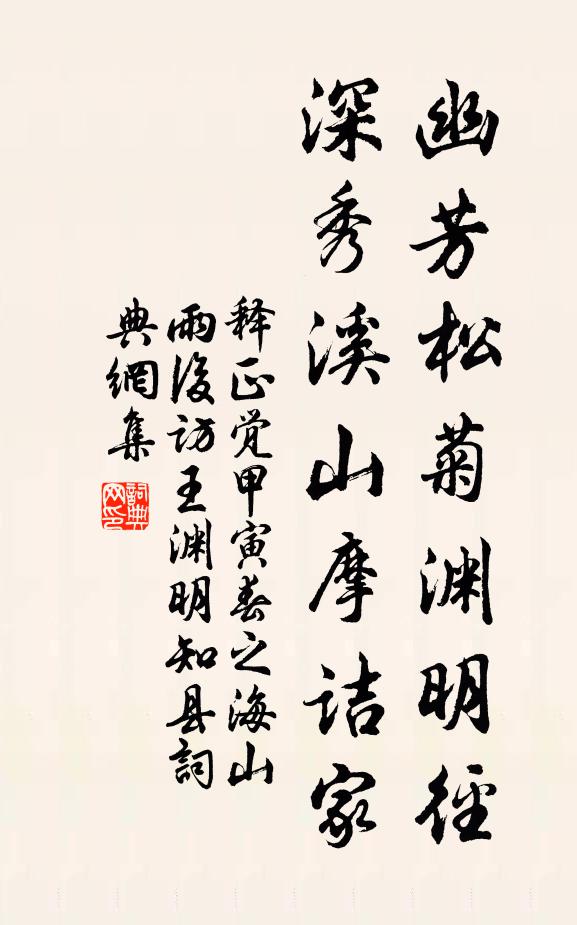 幽芳松菊渊明径
深秀溪山摩诘家
释正觉甲寅春之海山
雨后访王渊明知县詞
典網集
詞典
网印